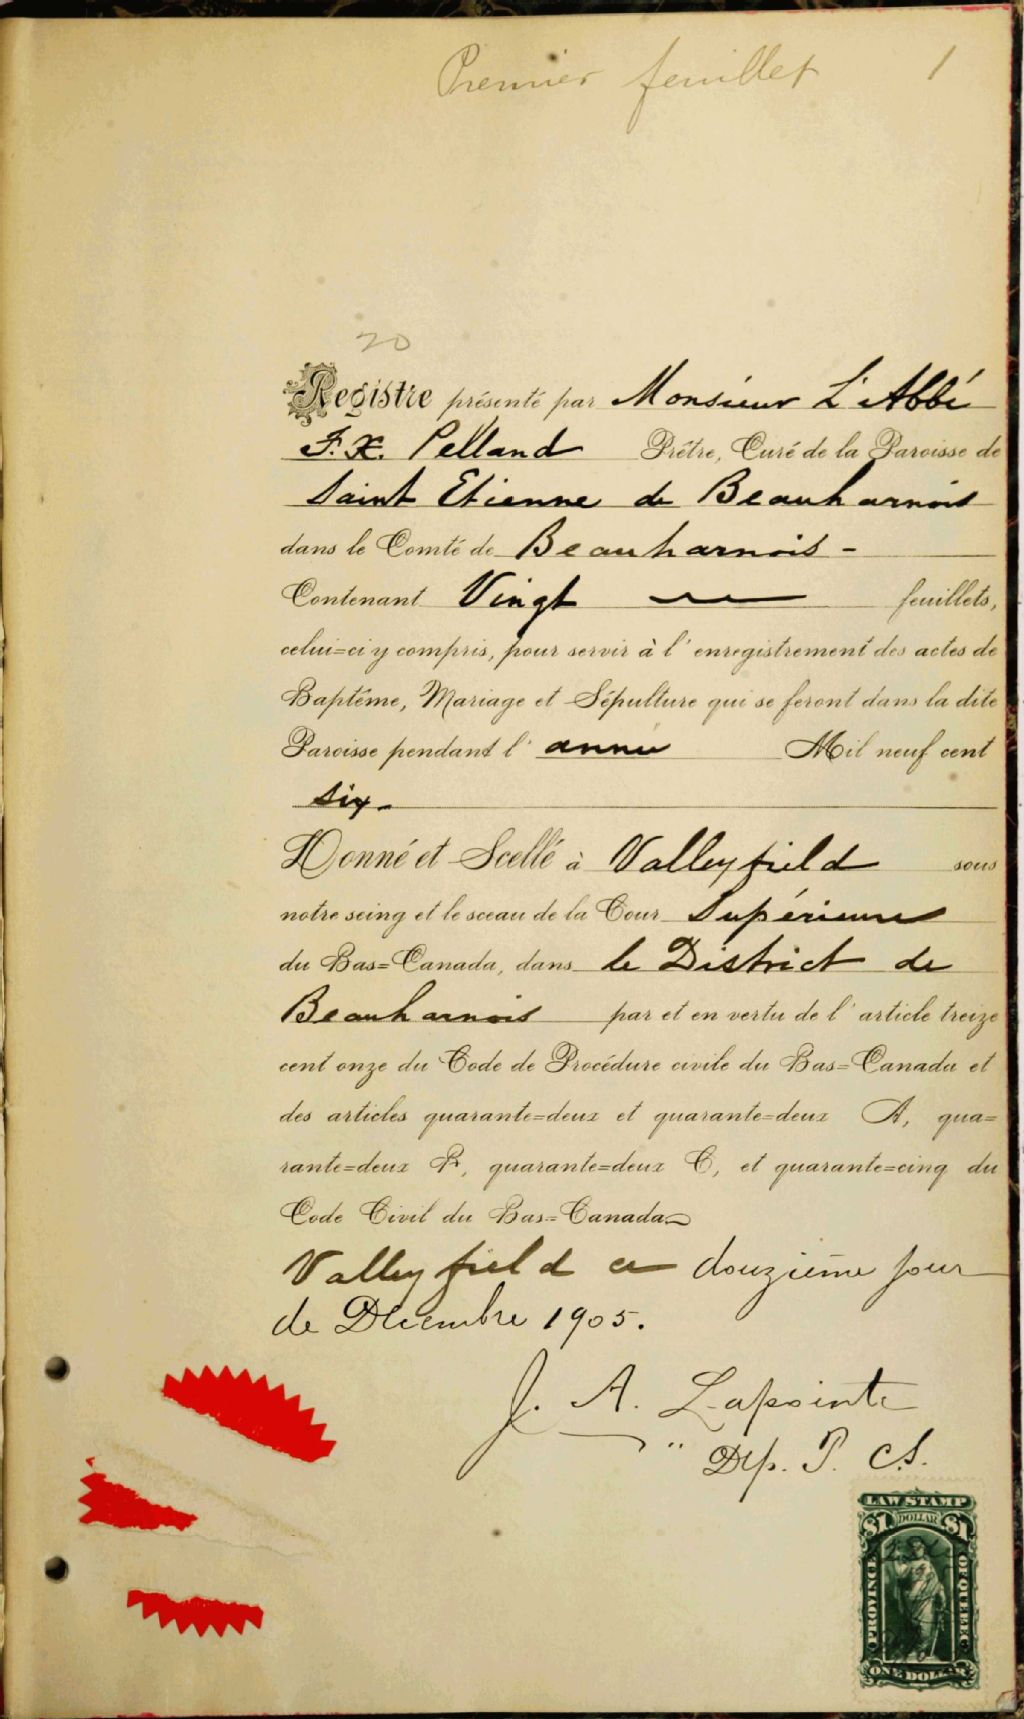 Premier feuillet 1
20
Registre présenté par Monsieur L'Abbé
F. X. Pelland Prêtre, Curé de la Paroisse de
Saint Etienne de Beauharnois
dans le Comté de Beauharnois -
Contenant Vingt feuillets,
celui=ci y compris, pour servir à l'enregistrement des actes de
Baptême, Mariage et Sépulture qui se feront dans la dite
Paroisse pendant l'année Mil neuf cent
six.
Donné et Scellé à Valleyfield sous
notre seing et le sceau de la Cour Supérieure
du Bas=Canada, dans le District de
Beauharnois par et en vertu de l'article treize
cent onze du Code de Procédure civile du Bas=Canada et
des articles quarante=deux et quarante=deux A, qua=
rante=deux B, quarante=deux C, et quarante=cinq du
Code Civil du Bas=Canada
Valleyfield ce douzième jour
de Décembre 1905.
J. A. Lapointe
Dep. P. C.S.
LAW STAMP
$1 DOLLAR $1
PROVINCE OF QUEBEC
ONE DOLLAR